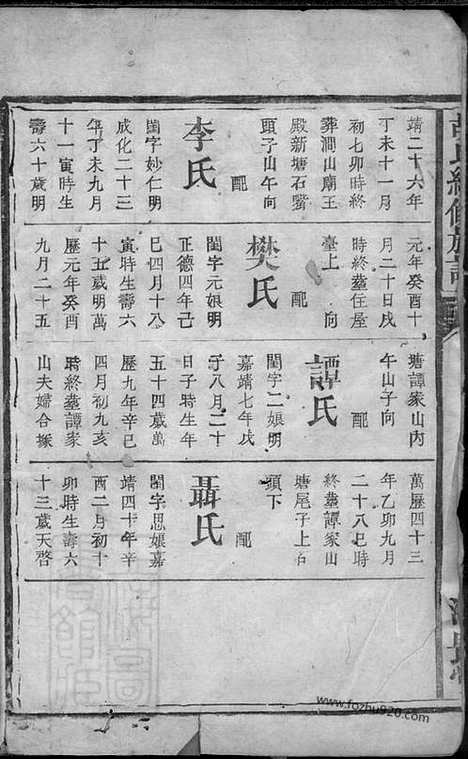 氏續修族譜
靖二十六年
丁未十一月
初七卯時終
葬澗山廟王
殿新塘石嘴
頭子山午向
配
李氏
閨字妙仁明
成化二十三
年丁未九月
十一寅時生
壽六十歲明
元年癸酉十
月二十日戌
時終葬住屋
臺上 向
配
樊氏
閨字元娘明
正德四年己
巳四月十八
寅時生壽六
十五歲明萬
歷元年癸酉
九月二十五
塘譚家山內
午山子向
配
譚氏
閨字二娘明
嘉靖七年戊
子八月二十
日子時生年
五十四歲萬
歷九年辛巳
四月初九亥
時終葬譚家
山夫婦合塚
萬歷四十三
年乙卯九月
二十八巳時
終葬譚家山
塘尾子上右
頭下
配
聶氏
閨字思娘嘉
靖四十年辛
酉二月初十
卯時生壽六
十三歲天啓
www.fozhu920.com